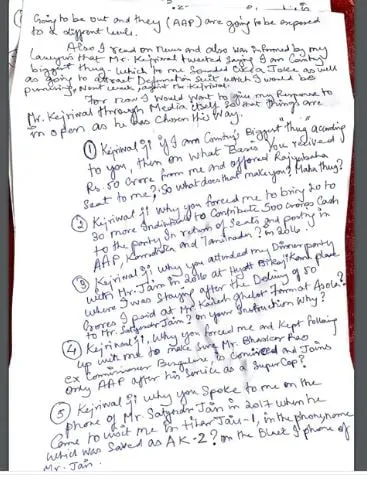 Going to be out and they (AAP) are going to be exposed
to a different level.
Also I read on News and also was informed by my
Lawyers that Mr. Kejriwal tweeted saying I am Country's
biggest thug. which to me sounded like a Joke as well
as going to attract Defamation Suit which I would be
pursuing Next week against Mr. Kejriwal.
For now I would want to give my Response to
Mr. Kejriwal through Media itself so that things are
in open as he has chosen this way.
① Kejriwal Ji if I am Country's Biggest Thug according
to you, then on what Basis you received
Rs. 50 Crore from me and offered Rajya Sabha
seat to me? So what does that make you? Maha Thug?
② Kejriwal Ji why you forced me to bring 20 to
30 more Individuals to Contribute 500 Crores Cash
to the party In return of Seats and posting in
AAP, Karnataka and Tamilnadu? In 2016.
③ Kejriwal Ji why you attended my Dinner party
with Mr. Jain in 2016 at Hyatt Bikaji Kama place
where I was staying after the Delivery of 50
Crores I paid at Mr Kailash Ghelot Farm at Asola?
to Mr. Satyendr Jain? on your Instruction Why?
④ Kejriwal Ji, Why you forced me and kept following
up with me to make Sure Mr. Bhaskar Rao
ex Commissioner Bangalore is convinced and Joins
only AAP after his service as a Super Cop?
⑤ Kejriwal Ji why you Spoke to me on the
phone of Mr. Satyendr Jain in 2017 when he
came to visit me in tihar Jail-1, in the phone name
which was saved as AK-2? on the Black I phone of
Mr. Jain.